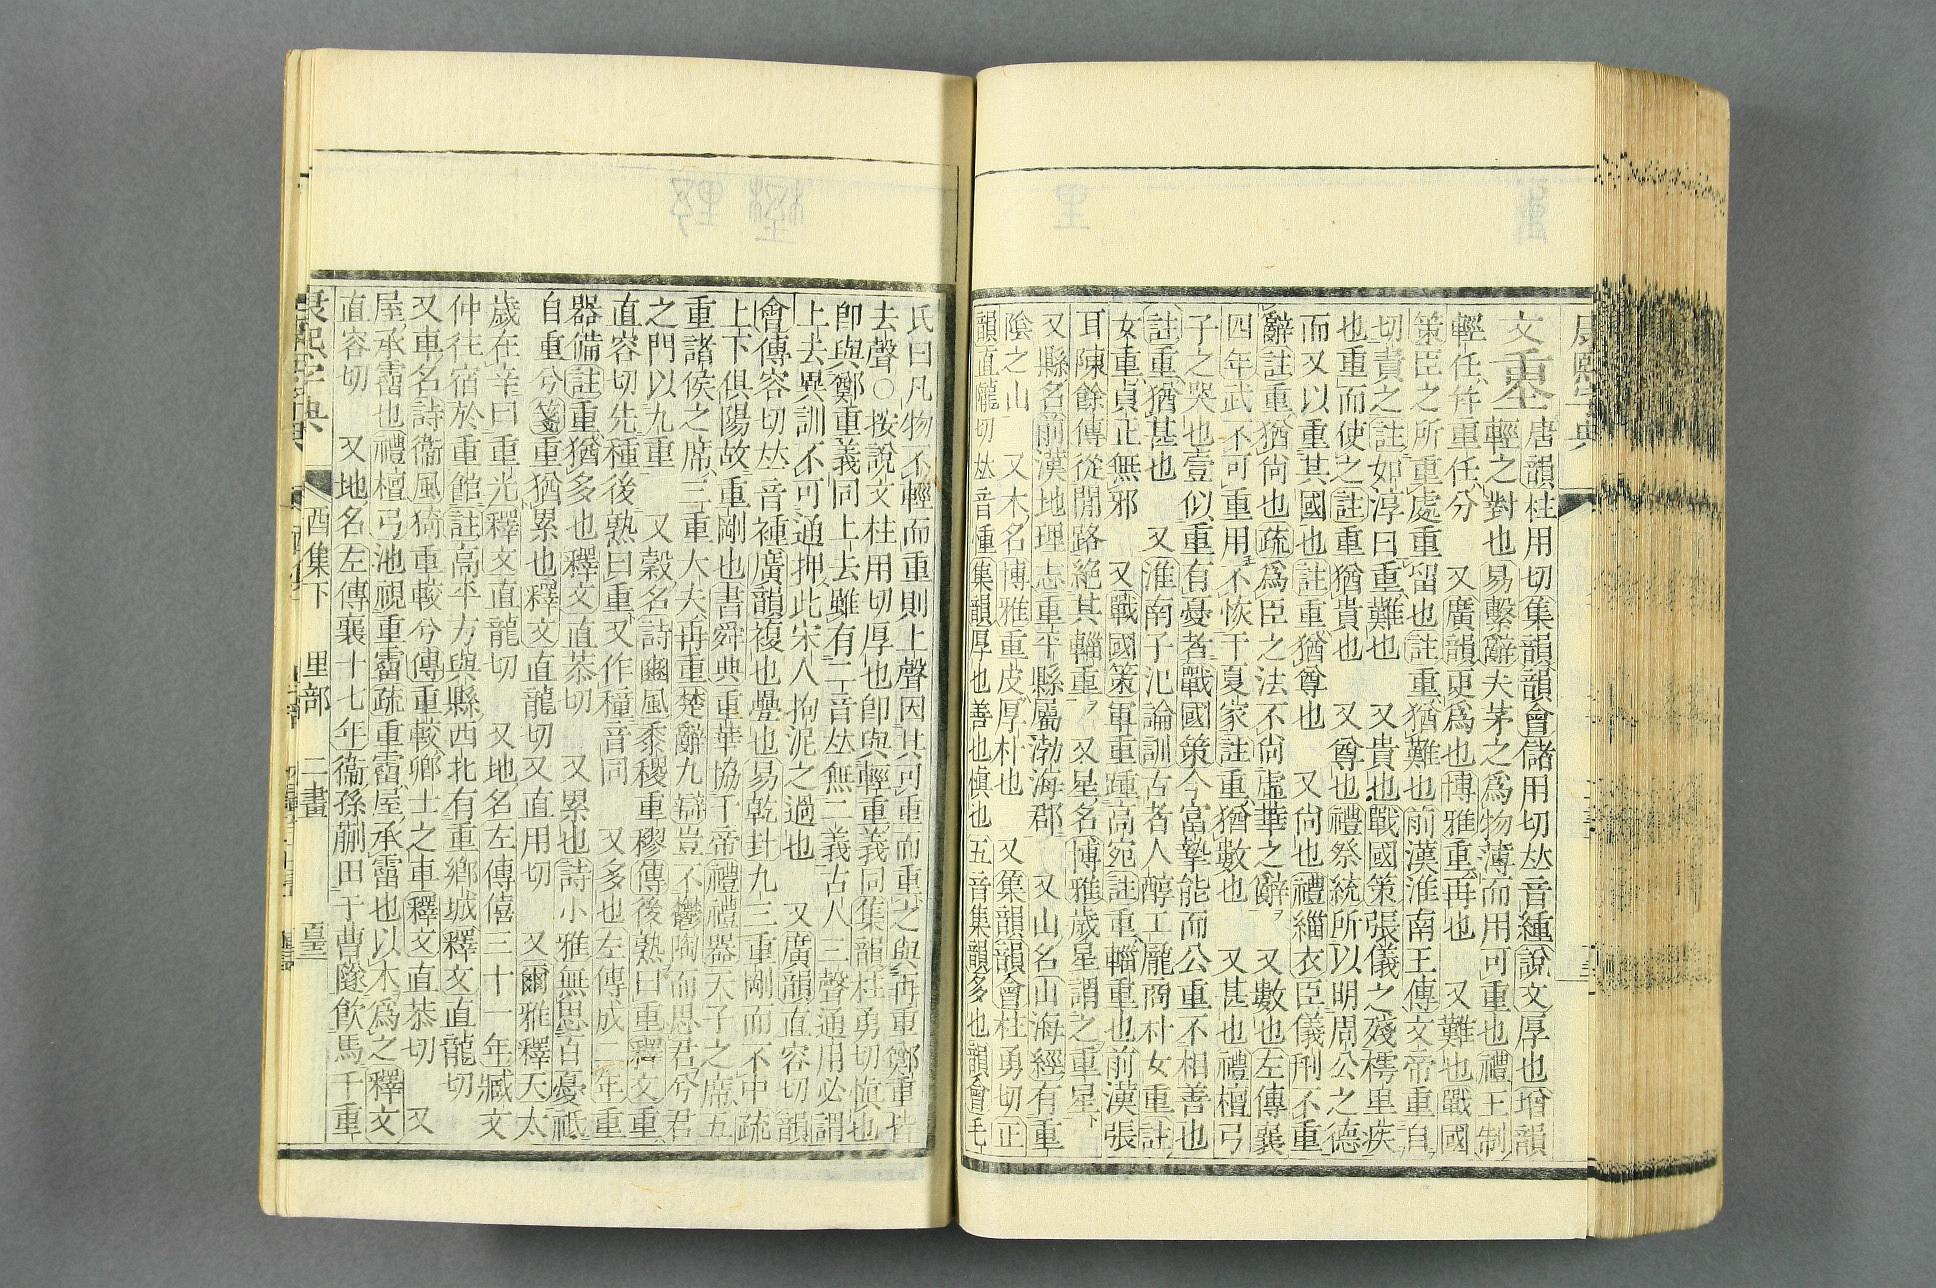 文重唐韻柱用切集韻韻會儲用切𠀤音緟說文厚也增韻
輕之對也易繫辭夫茅之爲物薄而用可重也禮王制
輕任幷重任分　又廣韻更爲也博雅重再也　又難也戰國
策臣之所重處重留也註重猶難也前漢淮南王傳文帝重自
切責之註如淳曰重難也　又貴也戰國策張儀之殘樗里疾
也重而使之註重猶貴也　又尊也禮祭統所以明周公之德
而又以重其國也註重猶尊也　又尙也禮緇衣臣儀刑不重
辭註重猶尙也疏爲臣之法不尙虛華之辭　又數也左傳襄
四年武不可重用不恢于夏家註重猶數也　又甚也禮檀弓
子之哭也壹似重有憂者戰國策今富摯能而公重不相善也
註重猶甚也　又淮南子氾論訓古者人醇工龐商朴女重註
女重貞正無邪　又戰國策軍重踵高宛註重輜重也前漢張
耳陳餘傳從閒路絕其輜重　又星名博雅歲星謂之重星
又縣名前漢地理志重平縣屬渤海郡　又山名山海經有重
陰之山　又木名博雅重皮厚朴也　又集韻韻會柱勇切正
韻直隴切𠀤音腫集韻厚也善也愼也五音集韻多也韻會毛
氏曰凡物不輕而重則上聲因其可重而重之與再重鄭重皆
去聲○按說文柱用切厚也卽與輕重義同集韻柱勇切愼也
卽與鄭重義同上去雖有二音𠀤無二義古人三聲通用必謂
上去異訓不可通押此宋人拘泥之過也　又廣韻直容切韻
會傳容切𠀤音褈廣韻複也疊也易乾卦九三重剛而不中疏
上下俱陽故重剛也書舜典重華協于帝禮禮器天子之席五
重諸侯之席三重大夫再重楚辭九辯豈不鬱陶而思君兮君
之門以九重　又穀名詩豳風黍稷重穋傳後熟曰重釋文重
直容切先種後熟曰重又作種音同　又多也左傳成二年重
器備註重猶多也釋文直恭切　又累也詩小雅無思百憂祇
自重兮箋重猶累也釋文直龍切又直用切　又爾雅釋天太
歲在辛曰重光釋文直龍切　又地名左傳僖三十一年臧文
仲往宿於重館註高平方與縣西北有重鄉城釋文直龍切
又車名詩衞風猗重較兮傳重較卿士之車釋文直恭切　又
屋承霤也禮檀弓池視重霤疏重霤屋承霤也以木爲之釋文
直容切　又地名左傳襄十七年衞孫蒯田于曹隧飮馬于重
康熙字典　酉集下　里部　二畫　重